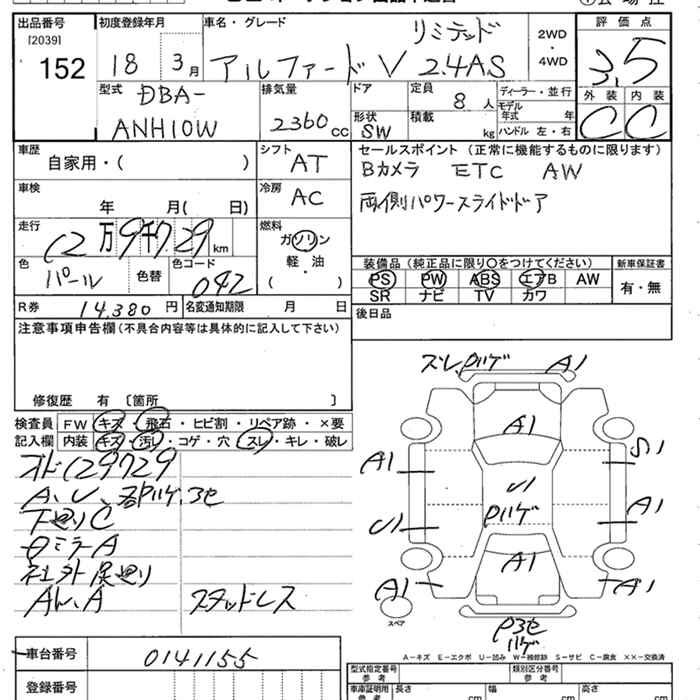 出品番号
[2039]
152
初度登録年月
18 3月
車名・グレード
リミテッド
アルファードV 2.4AS
2WD
・
4WD
評価点
3.5
外装 内装
C C
型式
DBA-
ANH10W
排気量
2360cc
ドア
形状
SW
定員
8人
積載 kg
ディーラー・並行
モデル年式 年
ハンドル 左・右
車歴
自家用・( )
シフト
AT
車検
年 月( 日)
冷房
AC
走行
12万9千729km
燃料
ガソリン
軽・油
( )
色
パール
色替
色コード
042
セールスポイント(正常に機能するものに限ります)
Bカメラ ETC AW
両側パワースライドドア
装備品(純正品に限り〇をつけてください)
PS PW ABS エアB AW
SR ナビ TV カワ
新車保証書
有・無
R券 14,380円
名変通知期限 月 日
後日品
注意事項申告欄(不具合内容等は具体的に記入して下さい)
修復歴 有 〔箇所 〕
検査員記入欄
FW キズ・飛石・ヒビ割・リペア跡・×要
内装 キズ・汚れ・コゲ・穴・スレ・キレ・破レ
オド129729
下廻りC
社外尾廻り
スタッドレス
ズレ,Pハゲ A1
A1
A1
S1
U1
Pハゲ
A1
U1
A1
A1
A1
スペア
ハゲ
A-キズ E-エクボ U-凹み W-補修跡 S-サビ C-腐食 ××-交換済
車台番号
0141155
登録番号
型式指定番号
参考
類別区分番号
参考
車庫証明用
参考
長さ cm
幅 cm
高さ cm